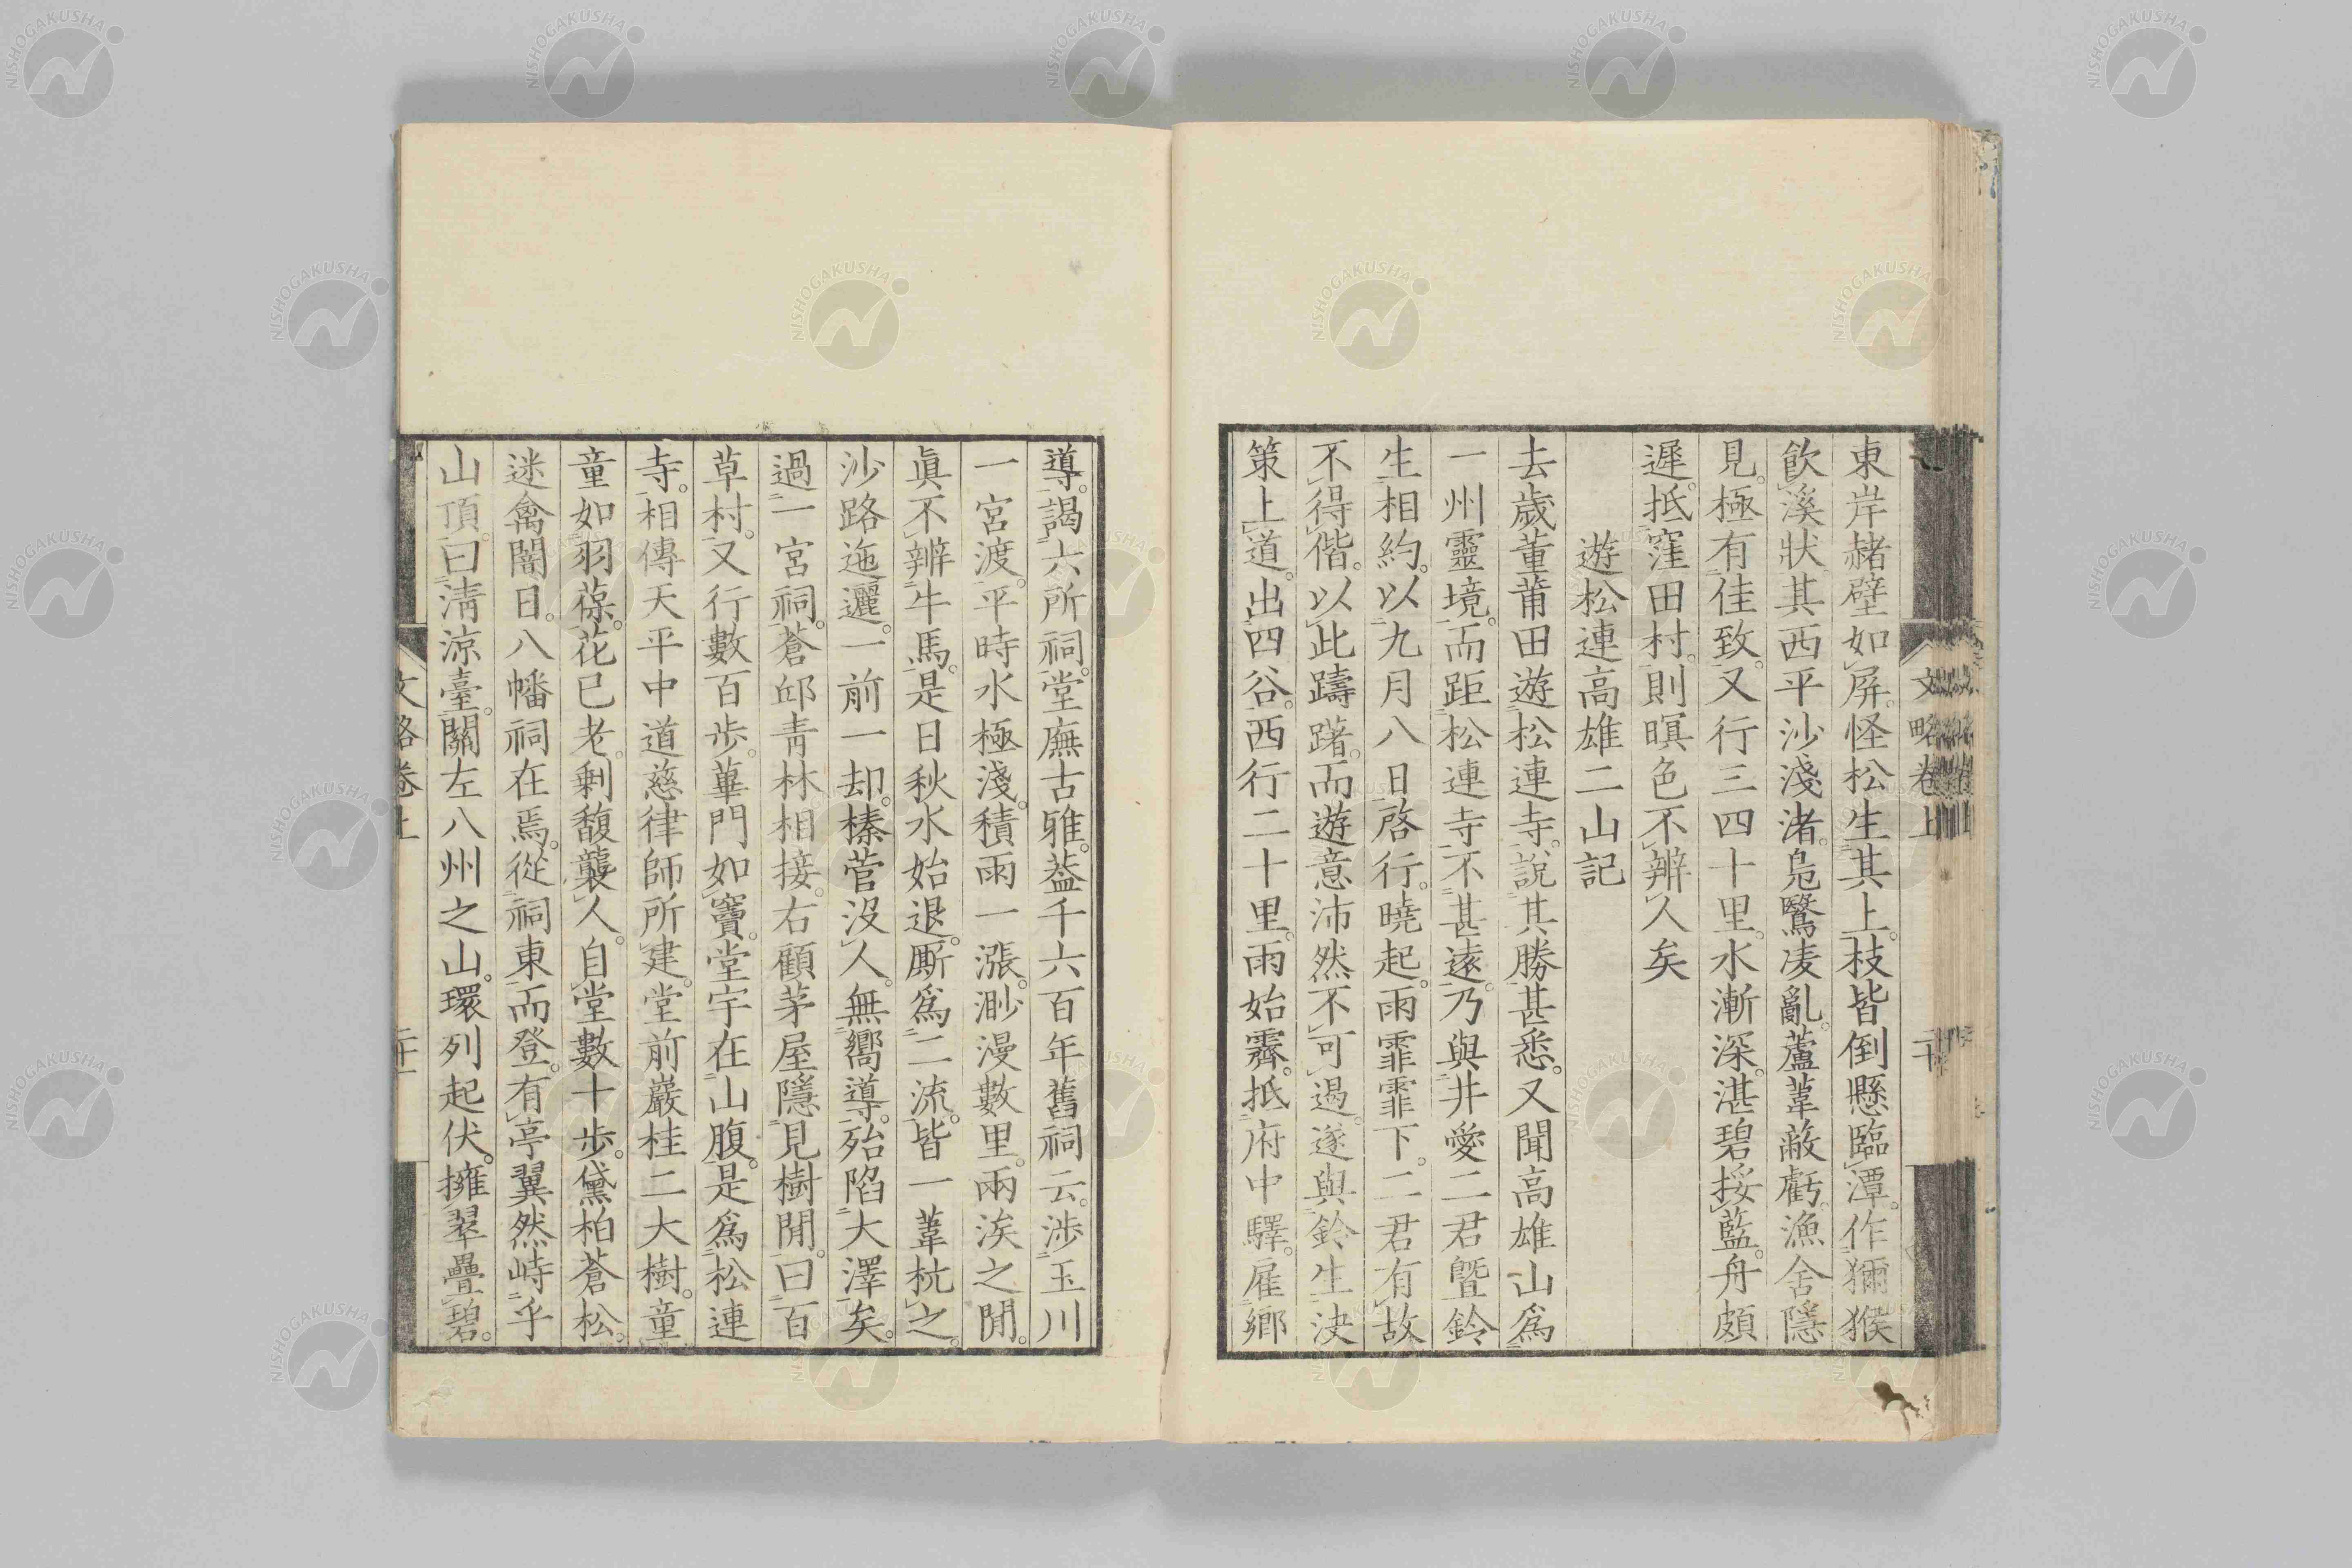 東岸赭壁如屏。怪松生其上。枝皆倒懸臨潭。作獼猴
飮溪狀其西平沙淺渚。鳧鷖凌亂。蘆葦蔽虧。漁舍隱
見。極有佳致。又行三四十里。水漸深。湛碧挼藍。舟頗
遲。抵窪田村。則暝色不辨人矣
遊松連高雄二山記
去歲董莆田遊松連寺。說其勝甚悉。又聞高雄山爲
一州靈境。而距松連寺不甚遠。乃與井愛二君曁鈴
生相約。以九月八日啓行。曉起。雨霏霏下。二君有故
不得偕。以此躊躇。而遊意沛然不可遏。遂與鈴生決
策上道。出四谷。西行二十里。雨始霽。抵府中驛。雇鄉
導。謁六所祠。堂廡古雅。蓋千六百年舊祠云。涉玉川
一宮渡。平時水極淺。積雨一漲。渺漫數里。兩涘之閒。
眞不辨牛馬。是日秋水始退。厮爲二流。皆一葦杭之。
沙路迤邐。一前一却。榛菅沒人。無嚮導。殆陷大澤矣。
過一宮祠。蒼邱靑林相接。右顧茅屋隱見樹閒。曰百
草村。又行數百步。蓽門如竇。堂宇在山腹。是爲松連
寺。相傳天平中道慈律師所建。堂前巖桂二大樹。童
童如羽葆。花已老。剩馥襲人。自堂數十步。黛柏蒼松。
迷禽闇日。八幡祠在焉。從祠東而登。有亭翼然峙乎
山頂。曰淸涼臺。關左八州之山。環列起伏。擁翠疊碧。
文略卷上
二十
文略卷上